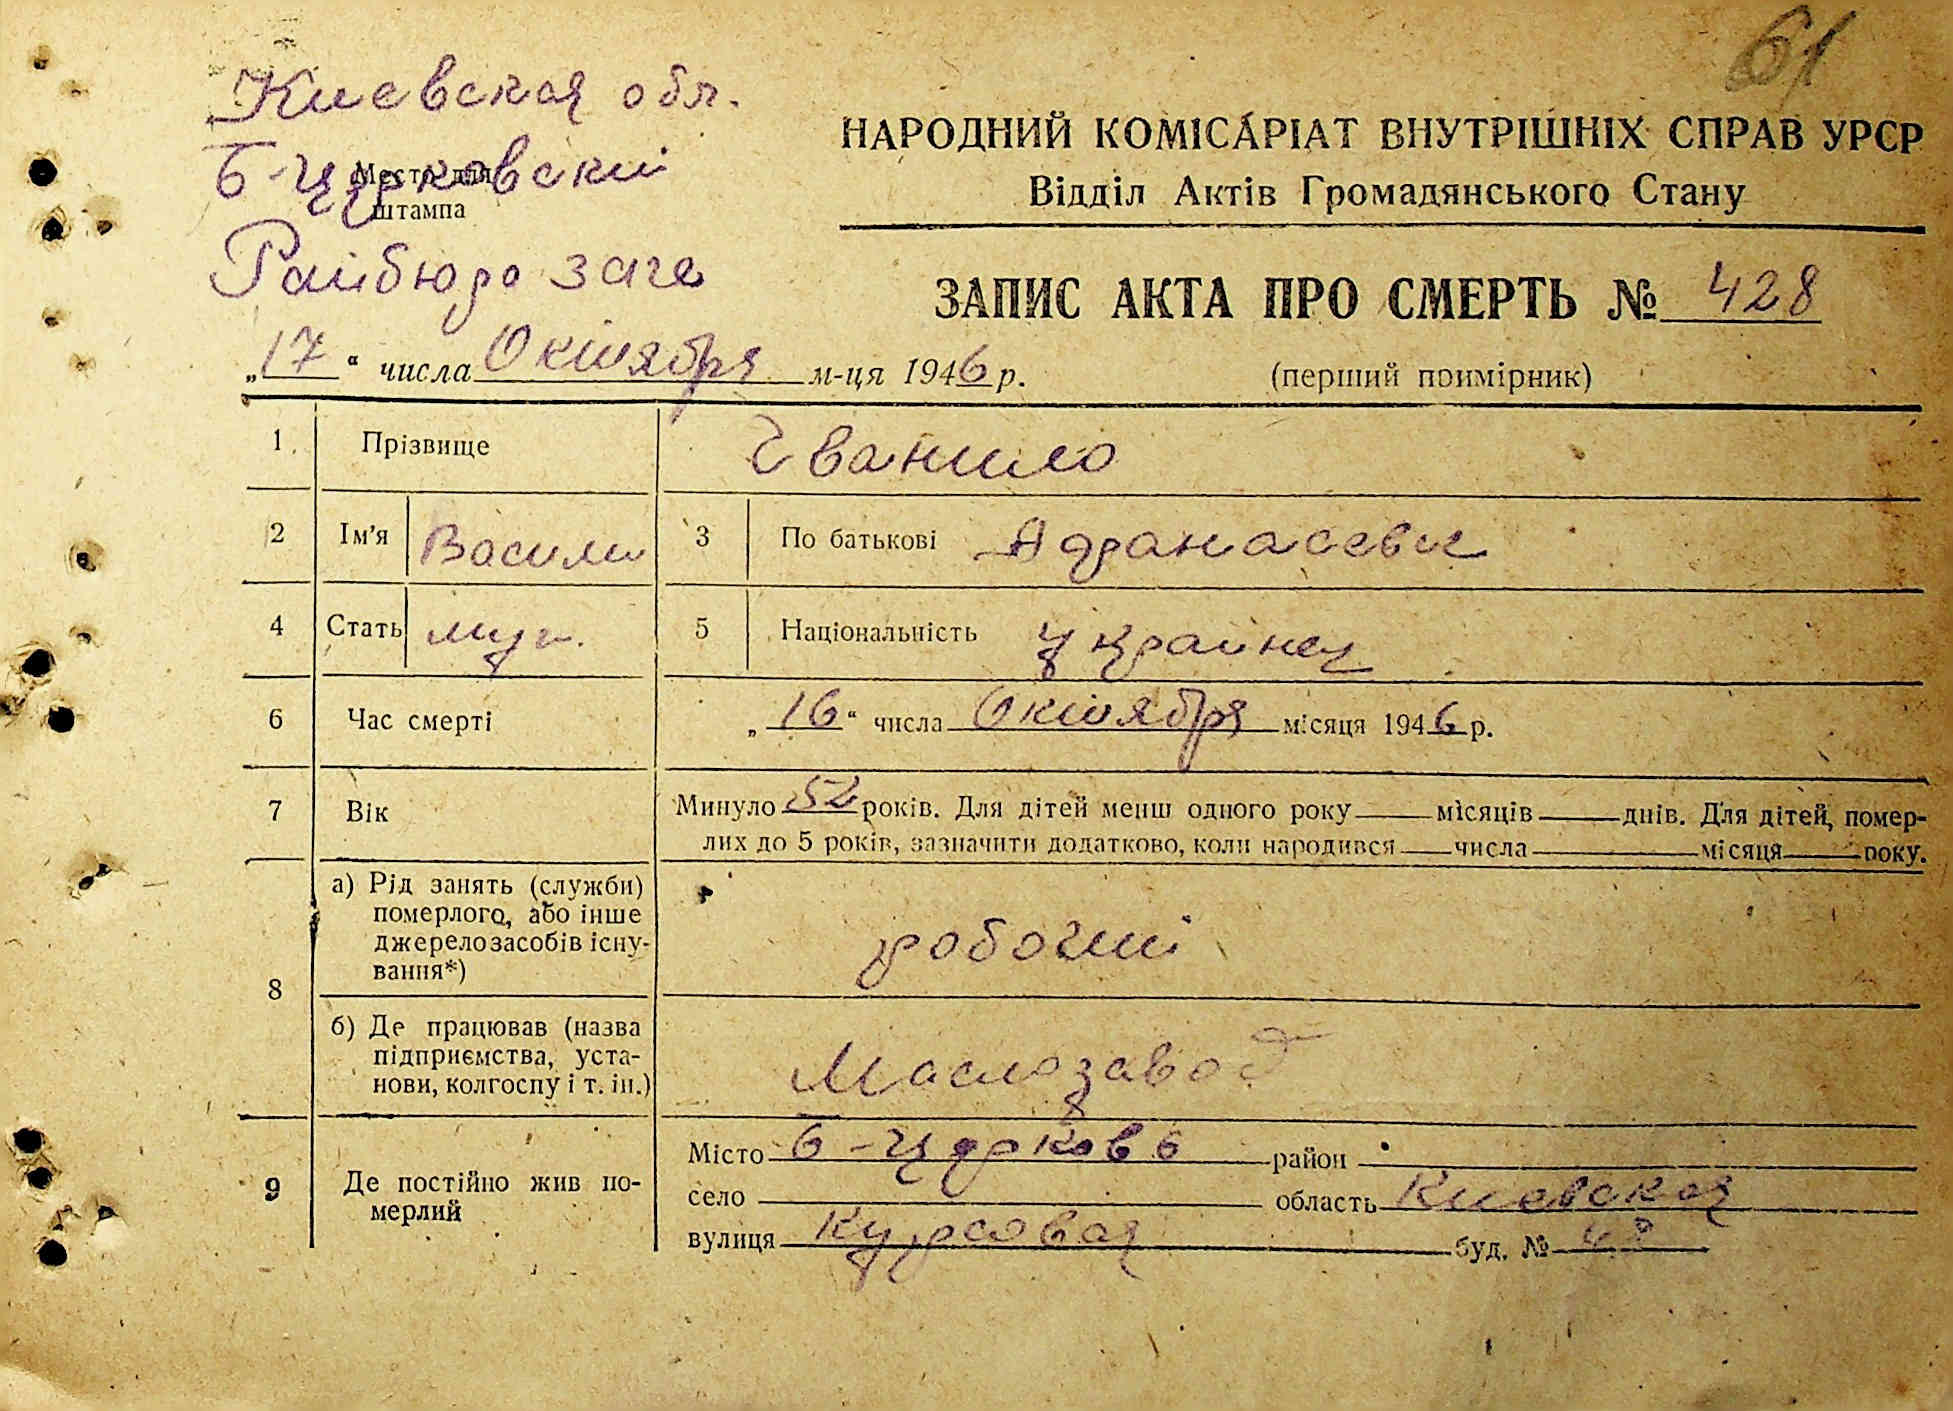 61
Киевская обл.
Б-Церковский
Место для
штампа
Райбюро загс
НАРОДНИЙ КОМІСАРІАТ ВНУТРІШНІХ СПРАВ УРСР
Відділ Актів Громадянського Стану
ЗАПИС АКТА ПРО СМЕРТЬ № 428
„17“ числа Октября м-ця 1946 р.
(перший примірник)
1 Прізвище Чванило
2 Ім'я Васили 3 По батькові Афанасеви
4 Стать муж. 5 Національність украинец
6 Час смерті „16“ числа Октября місяця 1946 р.
7 Вік Минуло 52 років. Для дітей менш одного року місяців днів. Для дітей, помер-
лих до 5 років, зазначити додатково, коли народився числа місяця року.
8 а) Рід занять (служби)
померлого, або інше
джерело засобів існу-
вання*)
робочий
б) Де працював (назва
підприємства, уста-
нови, колгоспу і т. ін.)
Маслозавод
9 Де постійно жив по-
мерлий
Місто Б-Церковь район
село область Киевская
вулиця Курсовая буд. № 48